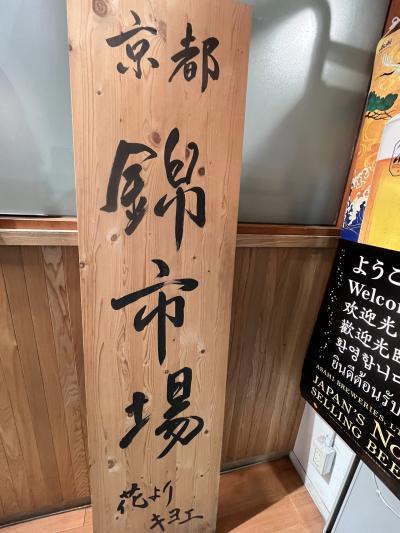 京都
錦
市
場
花より
キヨエ
ようこ
Welco
欢迎光
歡迎光臨
환영합니다
ยินดีต้อนรับ
ASAHI BREWERIES, L
JAPAN'S No
SELLING BEE